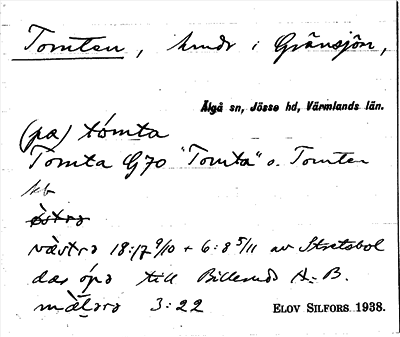 Tomten, hmdr i Gränsjön,
Älgå sn, Jösse hd, Värmlands län.
(på) tómta
Tomta G70 "Tomta" o. Tomten
kb
västra 18:17 9/10 + 6:8 5/11 av Stretsbol
das öpä till Billeruds A.-B.
3:22
ELOV SILFORS 1938.